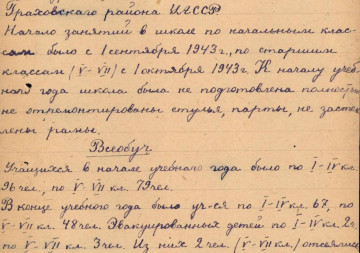 Граховского района УАССР
Начало занятий в школе по начальным клас-
сам было с 1 сентября 1943 г., по старшим
классам (V-VII) с 1 октября 1943 г. К началу учеб
ного года школа была не подготовлена полностью
не отремонтированы стулья, парты, не засте
лены рамы.
Всеобуч
Учащихся в начале учебного года было по I-IV кл.
96 чел, по V-VII кл. 79 чел.
В конце учебного года было уч-ся по I-IV кл. 67, по
V-VII кл. 48 чел. Эвакуированных детей по I-IV кл. 2
по V-VII кл. 3 чел. Из них 2 чел. (V-VII кл.) отсеялись